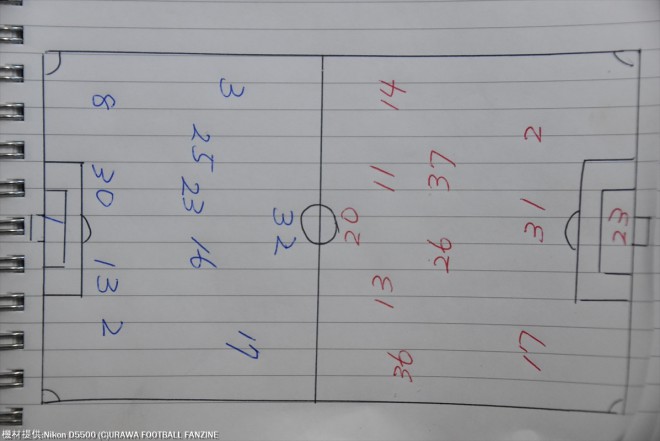 3
8
25
30
23
1
32
16
13
2
17
14
2
11
37
20
31
23
26
13
36
17
機材提供:Nikon D5500 (C)URAWA FOOTBALL FANZINE